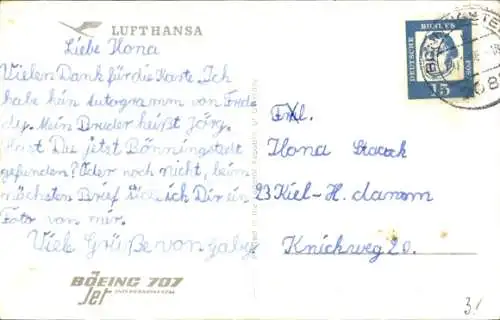 LUFTHANSA
Liebe Ilona
Vielen Dank für die Karte. Ich
habe kein Autogramm von Fredd
dy. Mein Bruder heißt Jörg.
Hast Du jetzt Bönningstedt
gefunden? Oder noch nicht, beim
nächsten Brief ich Dir ein
Foto von mir.
Viele Grüße von Gaby.
BOEING 707
Jet
INTERCONTINENTAL
DEUTSCHE
BUNDESPOST
15
Frl.
Ilona
23 Kiel-H. damm
Knickweg 20.
31